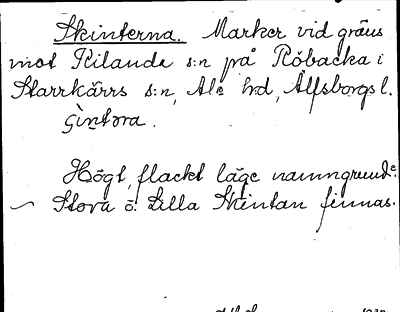 Skinterna. Marker vid gräns
mot Kilanda s:n på Röbacka i
Starrkärrs s:n, Ale hd, Älfsborgs l.
Högt, flackt läge namngrund:
~ Stora o. Lilla Skintan finnas.